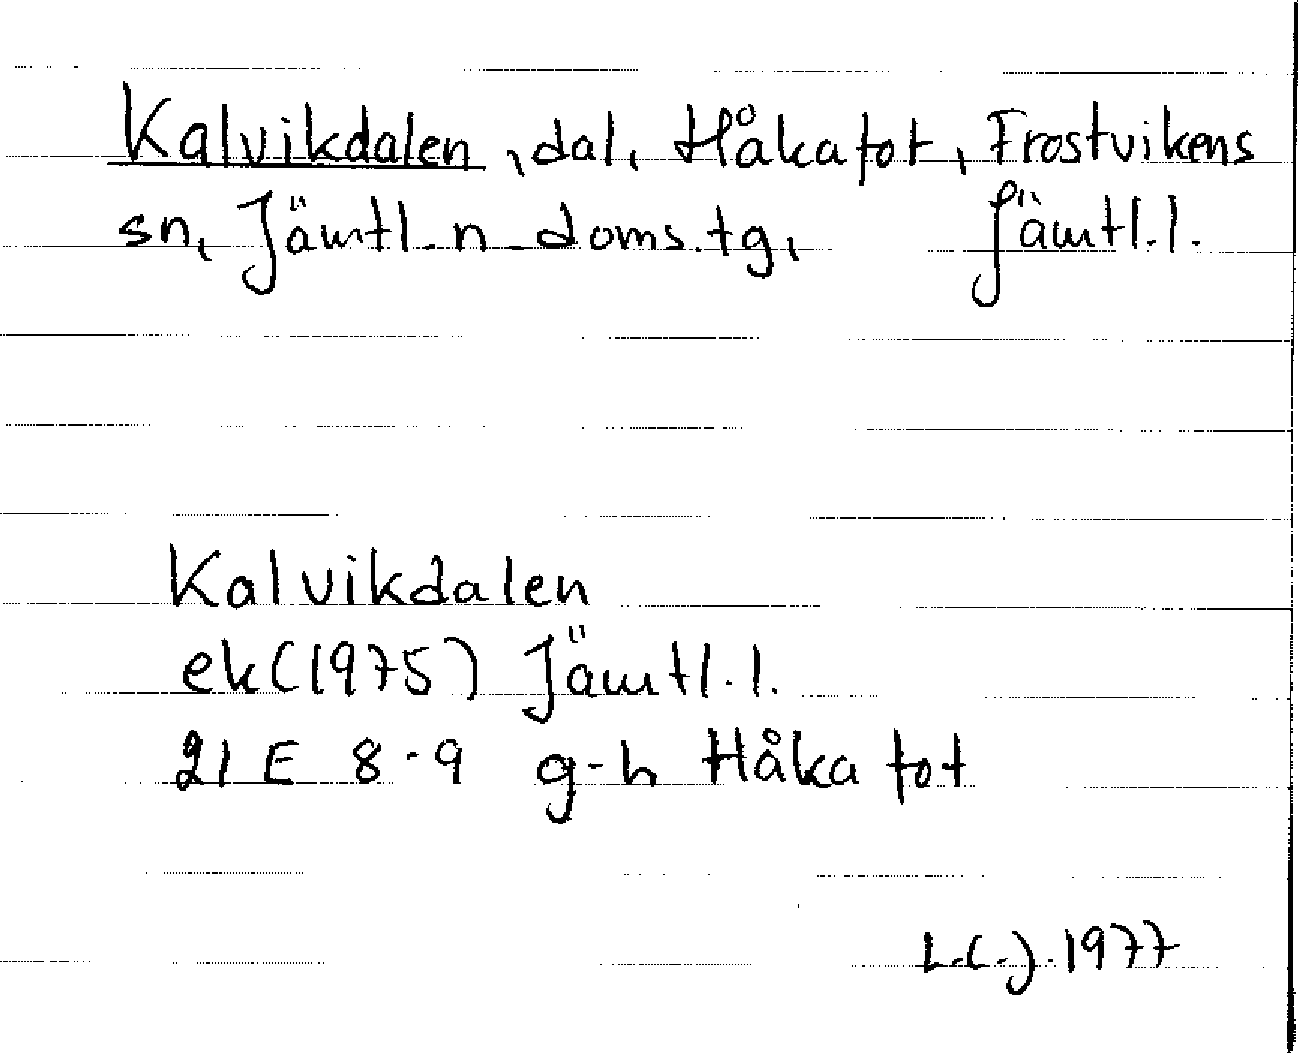 Kalvikdalen, dal, Håkafot, Frostvikens
sn, Jämtl. n doms.tg, Jämtl.l.
Kalvikdalen
ek(1975) Jämtl.l.
21 E 8-9 g-h Håkafot
L.C.J. 1977